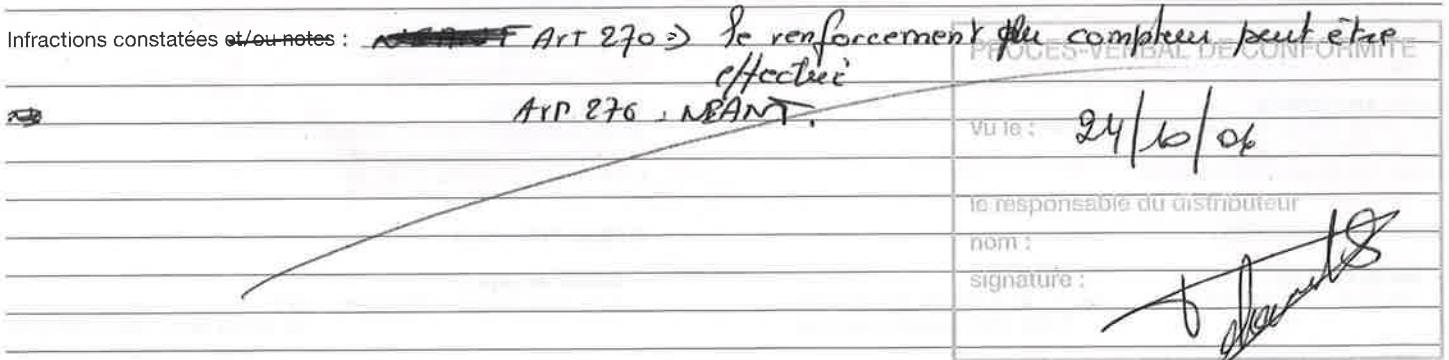 Infractions constatées et/ou notes : Art 270 => le renforcement du compteur peut être
effectué
Art 276 : NEANT.
PROCES-VERBAL DE CONFORMITE
Vu le : 24/10/06
le responsable du distributeur
nom :
signature :